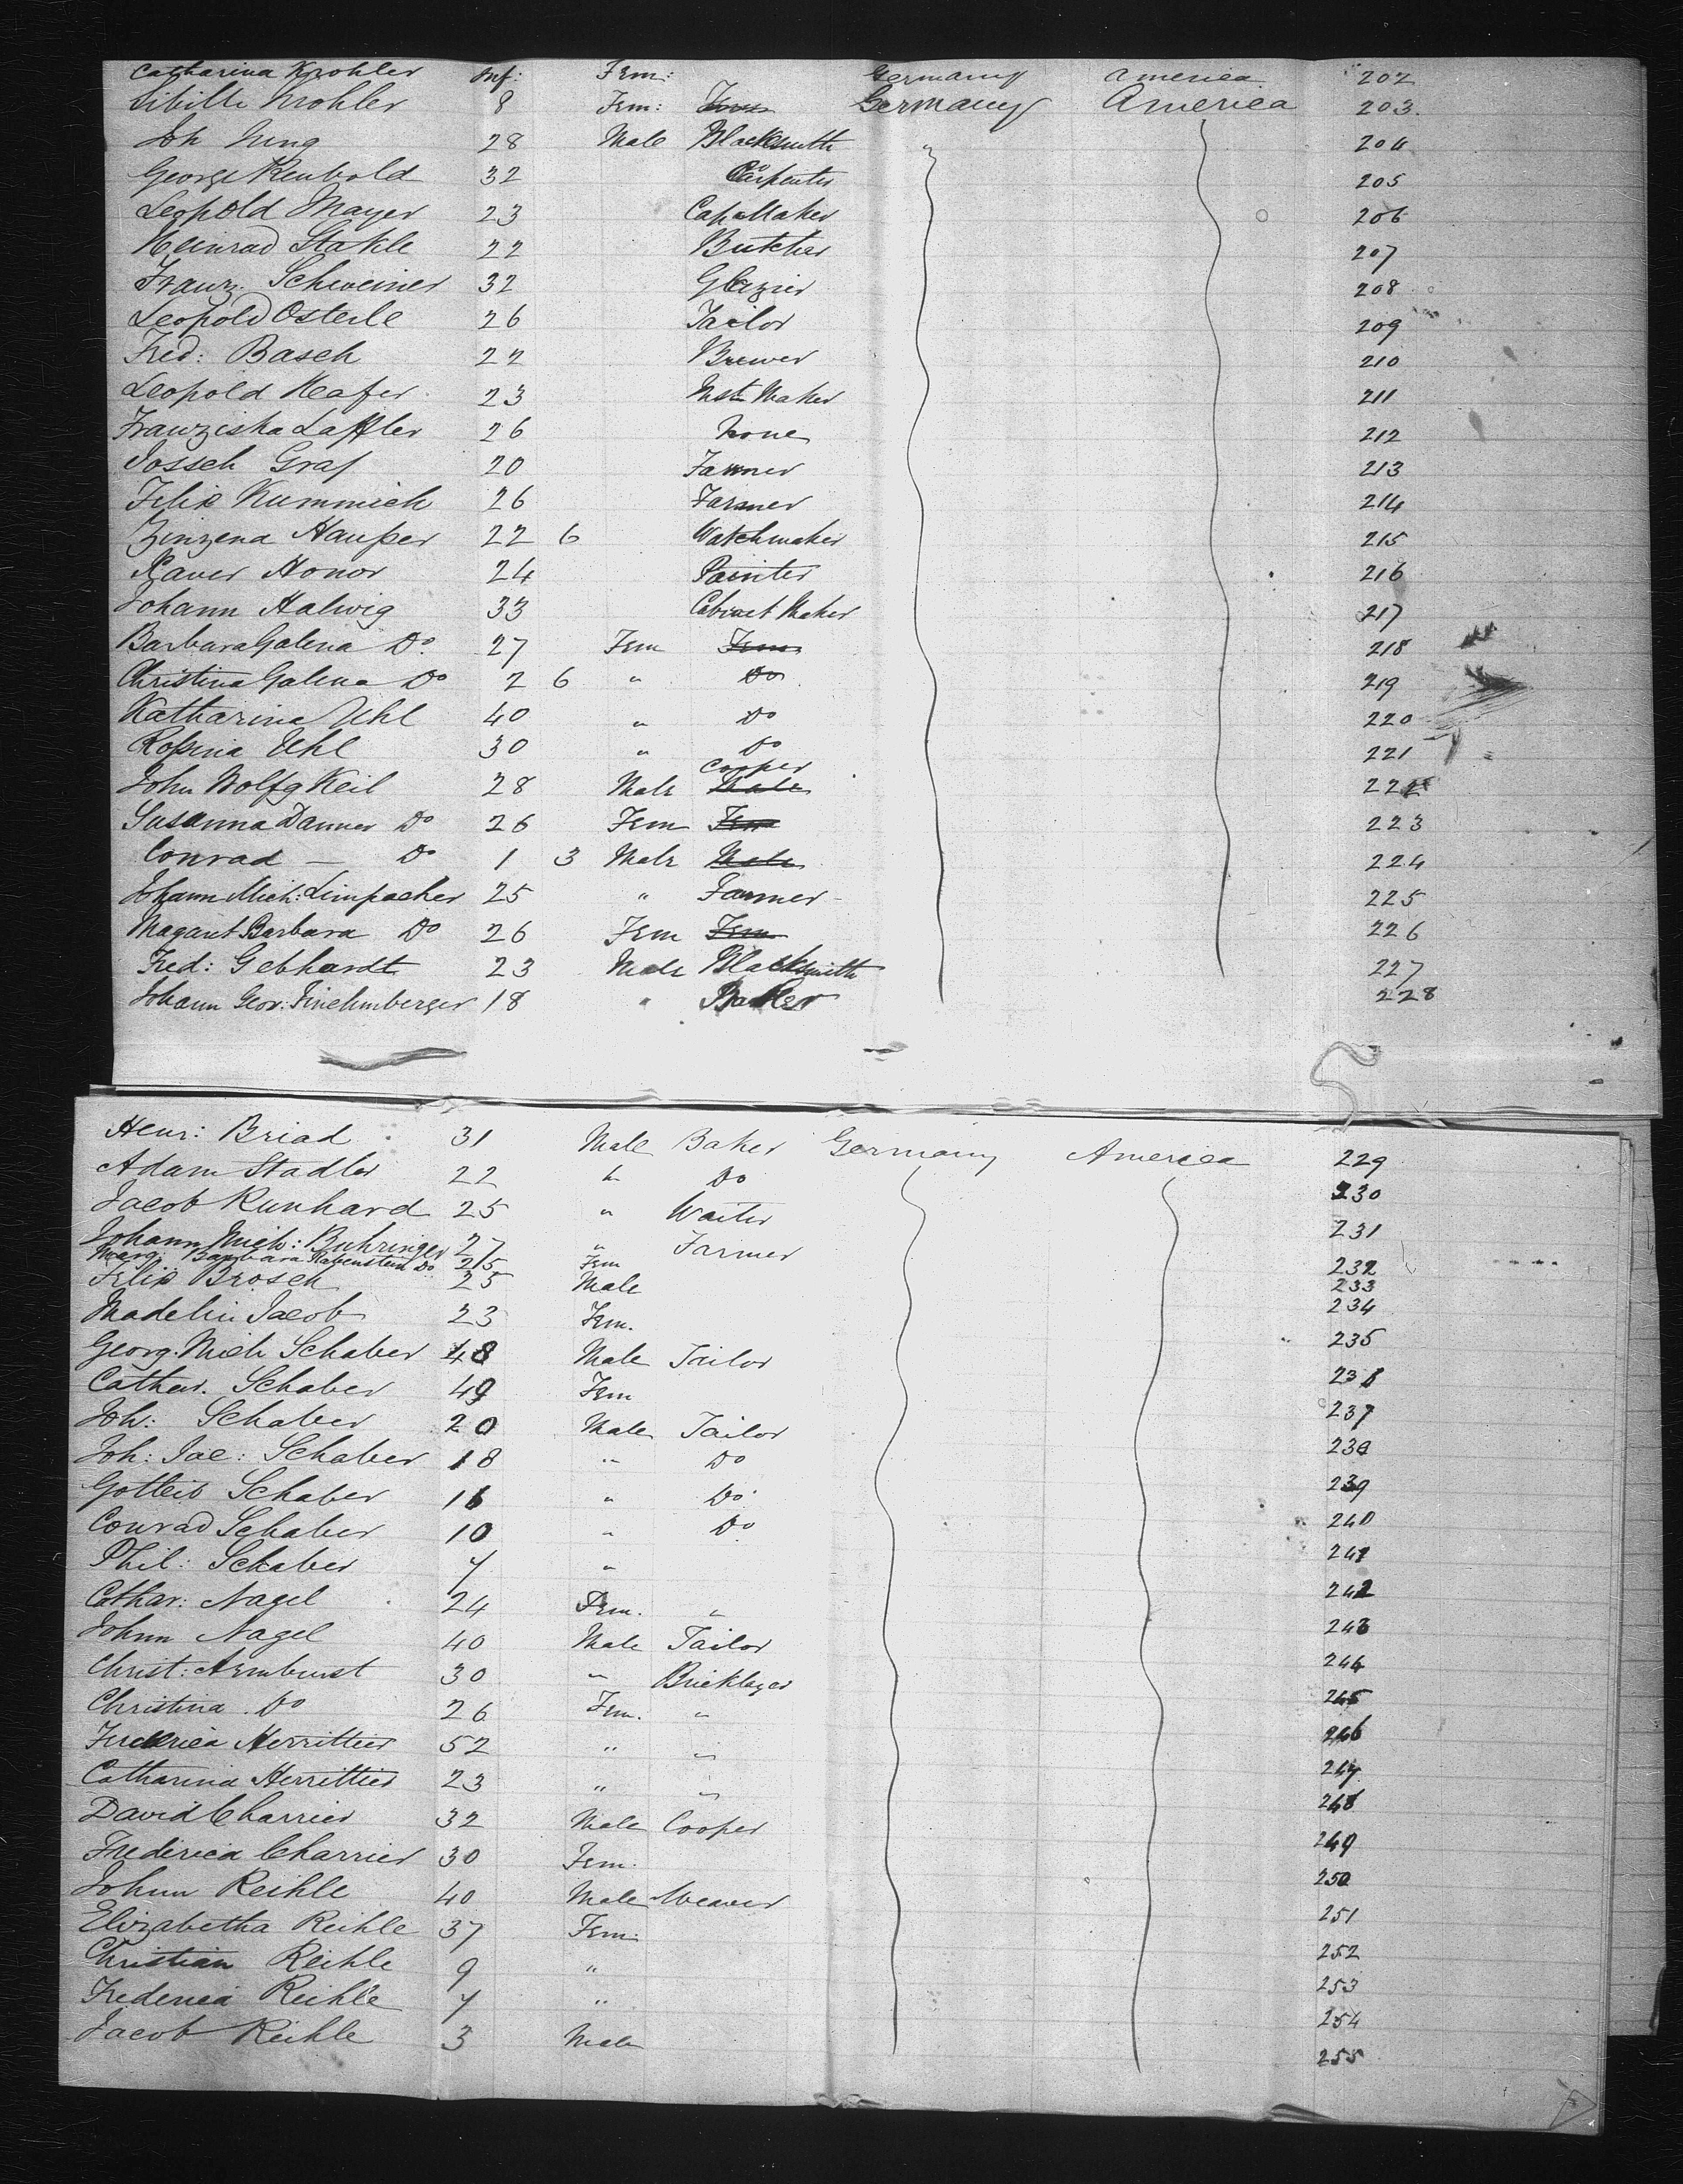 Catharina Krohler Inf: Fem: Germany America 202
Sibilli Krohler 8 Fem: Fem Germany America 203.
Joh Jung 28 Male Blacksmith " 204
George Reubold 32 Carpenter 205
Leopold Mayer 23 Cap Maker 206
Meinrad Stakle 22 Butcher 207
Franz Schweiner 32 Glazier 208
Leopold Osterle 26 Tailor 209
Fred: Basch 22 Brewer 210
Leopold Keafer 23 Inst Maker 211
Franziska Laffler 26 None 212
Josseh Graf 20 Farmer 213
Felix Kummich 26 Farmer 214
Zinzena Hauser 22 6 Watchmaker 215
Xaver Honor 24 Painter 216
Johann Halwig 33 Cabinet Maker 217
Barbara Galena Do. 27 Fem Fem 218
Christina Galena Do 2 6 " Do 219
Katharina Uhl 40 " Do 220
Rossina Uhl 30 " Do 221
Cooper
John Wolfg Keil 28 Male Male 222
Susanna Danner Do 26 Fem Fem 223
Conrad — Do 1 3 Male Male 224
Johann Mich: Limpacher 25 " Farmer 225
Magaret Barbara Do 26 Fem Fem 226
Fred: Gebhardt 23 Male Blacksmith 227
Johann Geor: 18 " Baker 228
5
Henr: Briad 31 Male Baker Germany America 229
Adam Stadler 22 " Do 230
Jacob Kunhard 25 " Waiter 231
Johann Mich: Buhringer 27 " Farmer 232
Marg: Barbara Do 25 Fem 233
Felix Brosch 25 Male 234
Madelin Jacob 23 Fem. 235
Georg. Mich Schaber 48 Male Tailor 236
Cathar. Schaber 49 Fem 237
Joh: Schaber 20 Male Tailor 238
Joh: Jac: Schaber 18 " Do 239
Gotleib Schaber 16 " Do 240
Conrad Schaber 10 " Do 241
Phil: Schaber 7 " 242
Cathar: Nagel 24 Fem. " 243
Johnn Nagel 40 Male Tailor 244
Christ: Armbrust 30 " Bricklayer 245
Christina Do 26 Fem. " 246
Frederica Herrittier 52 " " 247
Catharina Herrittier 23 " " 248
David Charrier 32 Male Cooper 249
Frederica Charrier 30 Fem. 250
Johnn Reihle 40 Male Weaver 251
Elizabetha Reihle 37 Fem. 252
Christian Reihle 9 " 253
Frederica Reihle 7 " 254
Jacob Reihle 3 Male 255